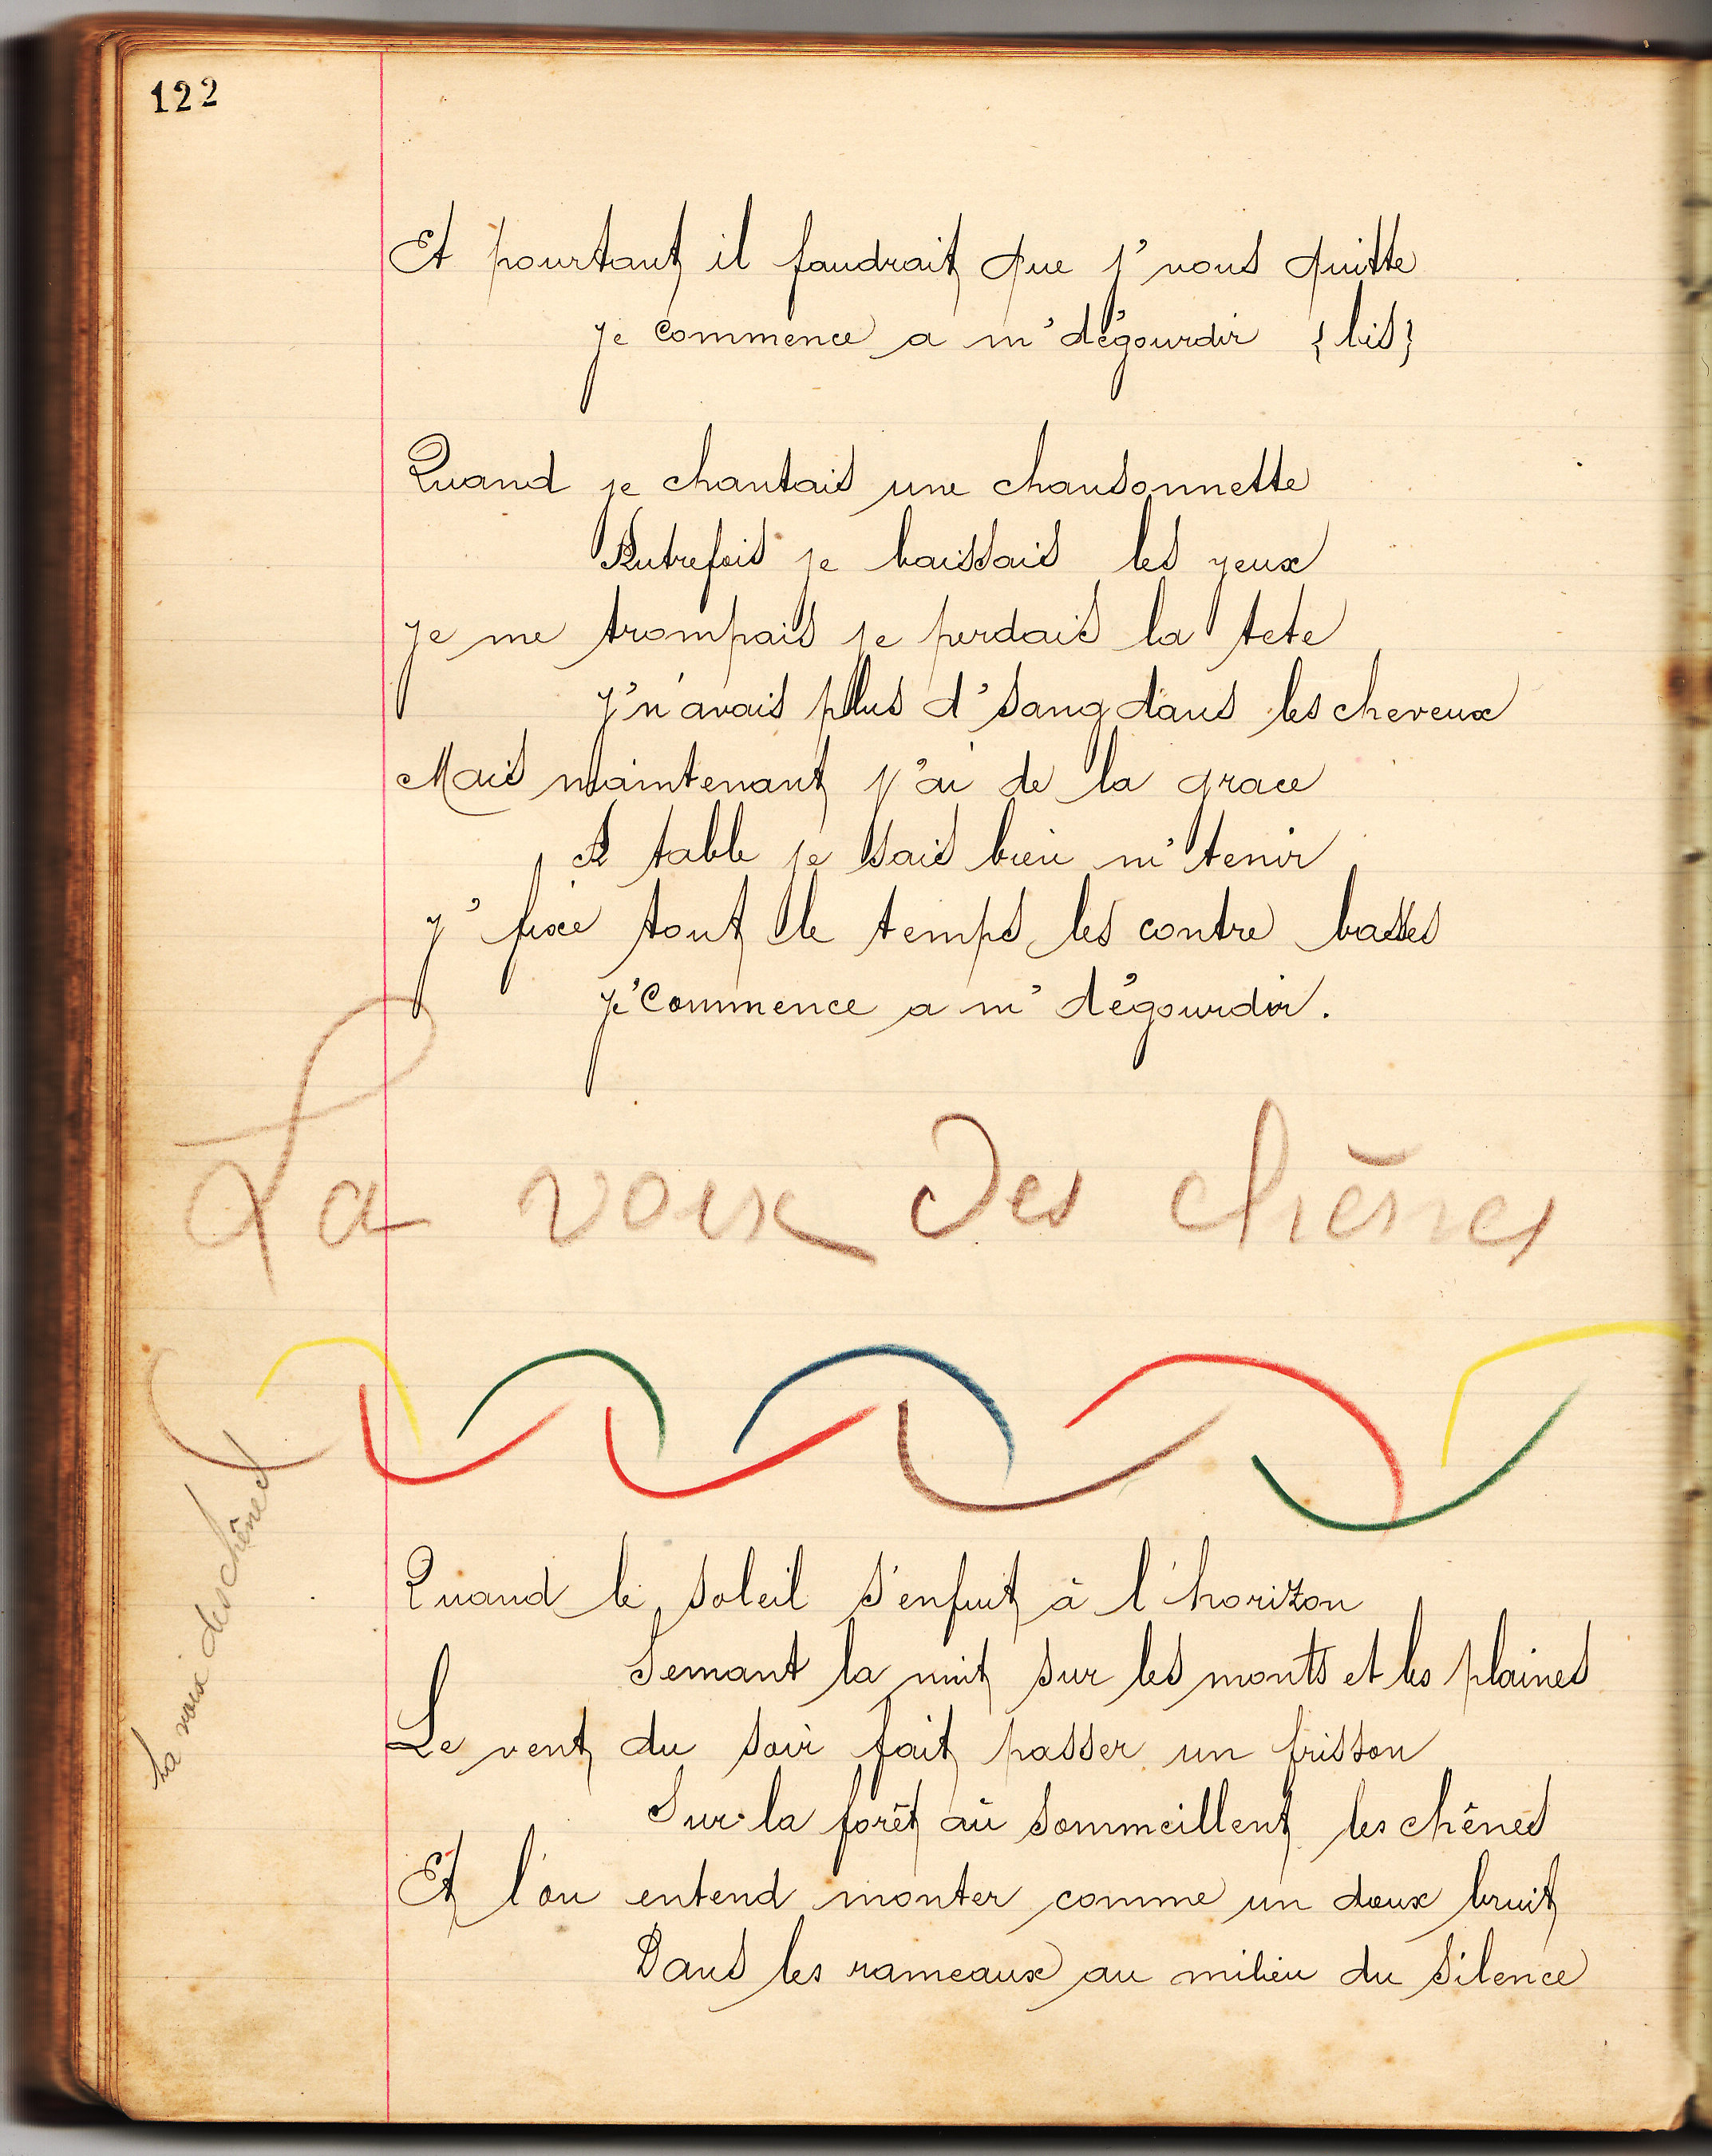 122
Et pourtant il faudrait que j'vous quitte
Je commence a m'dégourdir {bis}
Quand je chantais une chansonnette
Autrefois je baissais les yeux
Je me trompais je perdais la tete
J'n'avais plus d'sang dans les cheveux
Mais maintenant j'ai de la grace
A table je sais bien m'tenir
J'fixe tout le temps les contre basses
Je Commence a m'dégourdir.
La voix des chênes
La voix des chênes
Quand le soleil s'enfuit à l'horizon
Semant la nuit sur les monts et les plaines
Le vent du soir fait passer un frisson
Sur la forêt où sommeillent les chênes
Et l'on entend monter comme un doux bruit
Dans les rameaux au milieu du silence